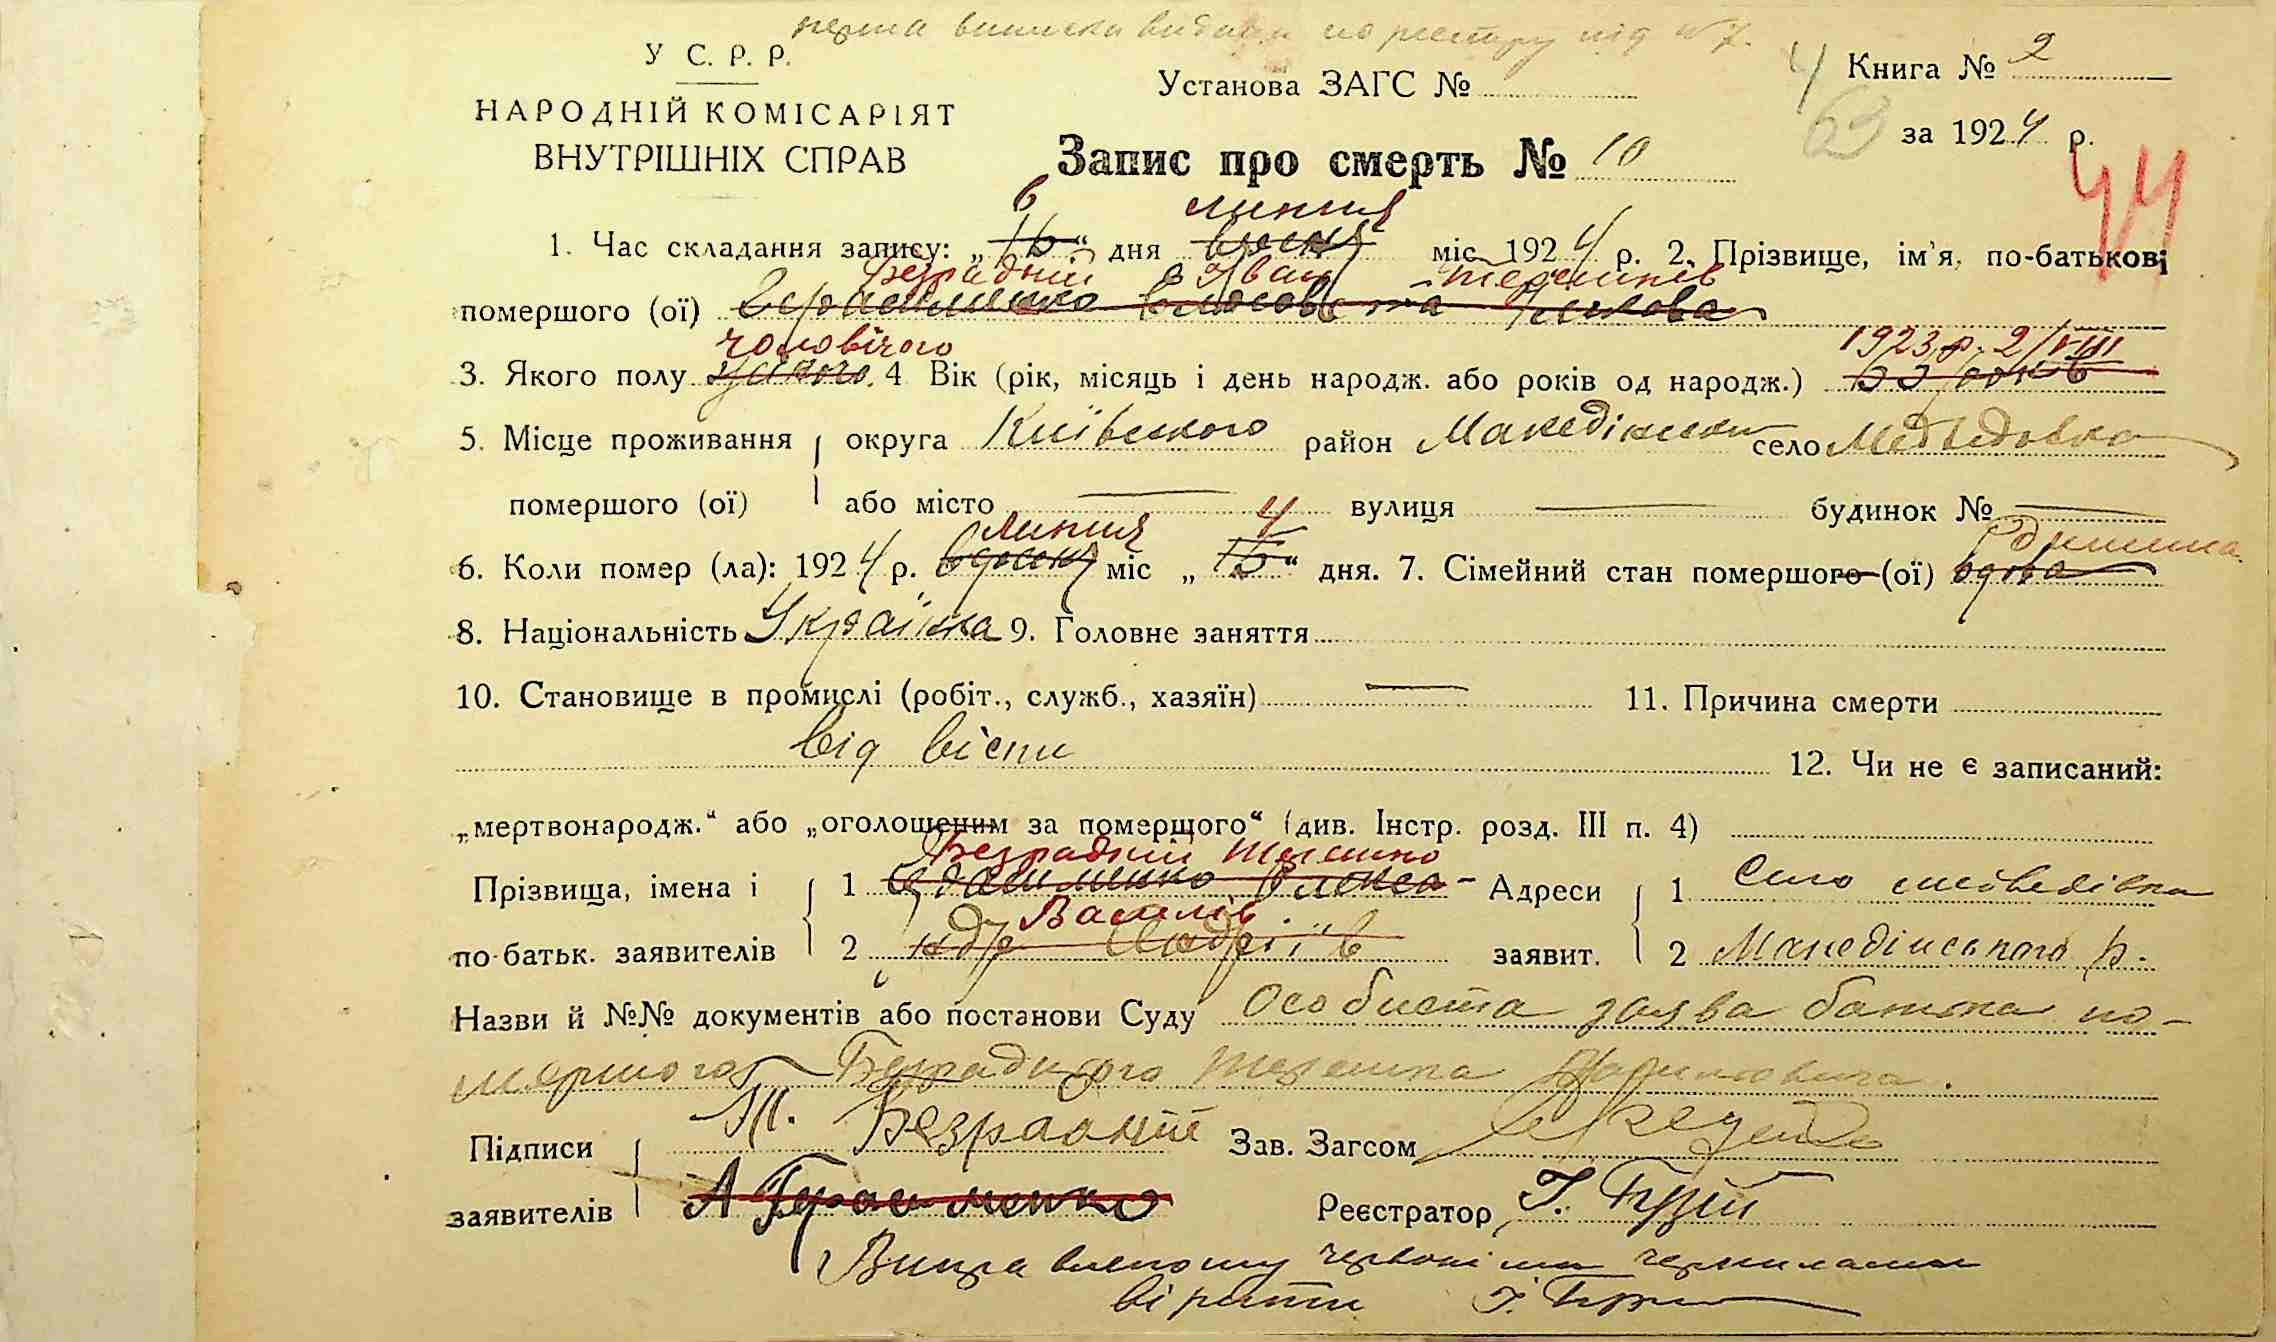 перша виписка видана по реєстру під № 7.
У С. Р. Р.
НАРОДНІЙ КОМІСАРІЯТ
ВНУТРІШНІХ СПРАВ
Установа ЗАГС №
Книга № 2
4
63
за 1924 р.
44
Запис про смерть № 10
6 липня
1. Час складання запису: „15“ дня міс. 1924 р. 2. Прізвище, ім'я, по-батькові
Безрадній Іван Терешків
помершого (ої) Герасименко
чоловічого 1923 р. 2/VIII
3. Якого полу 4 Вік (рік, місяць і день народж. або років од народж.) 55 років
5. Місце проживання округа Київського район село Медведовка
помершого (ої) або місто — вулиця — будинок № —
липня 4 Одиниця
6. Коли помер (ла): 1924 р. міс „15“ дня. 7. Сімейний стан помершого (ої) вдова
8. Національність Українка 9. Головне заняття
10. Становище в промислі (робіт., служб., хазяїн) — 11. Причина смерти
від віспи
12. Чи не є записаний:
„мертвонародж.“ або „оголошеним за померщого“ (див. Інстр. розд. III п. 4)
Безрадній Терешко
Прізвища, імена і 1 Герасименко Олекса- Адреси 1 Село Медведівка
Василів
по-батьк. заявителів 2 ндр Андріїв заявит. 2 Македінського р.
Назви й №№ документів або постанови Суду Особиста заява батька по-
мершого Безрадного Терешка
Підписи Т. Безрадній Зав. Загсом
заявителів А Герасименко Реєстратор І. Брій
червоними чернилами
вірити І.